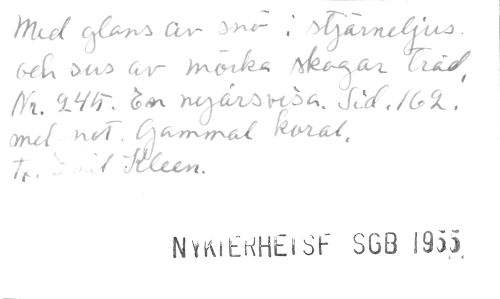 Med glans av snö i stjärneljus.
och sus av mörka skogar träd,
Nr. 245. En nyårsvisa. Sid. 162.
mel. not. Gammal koral,
T. Emil Kleen.
NYKTERHETSF SGB 1955.